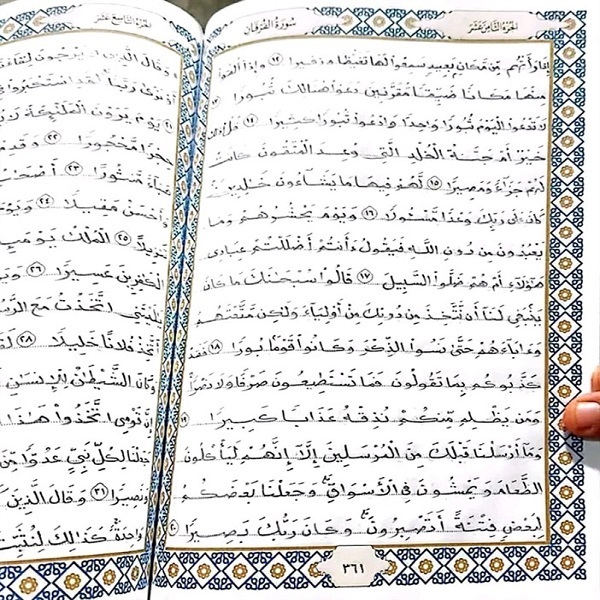 الجزء الثامن عشر
سورة الفرقان
إِذَا رَأَتْهُم مِّن مَّكَانٍ بَعِيدٍ سَمِعُوا۟ لَهَا تَغَيُّظًا وَزَفِيرًا ١٢ وَإِذَآ أُلْقُوا۟
مِنْهَا مَكَانًا ضَيِّقًا مُّقَرَّنِينَ دَعَوْا۟ هُنَالِكَ ثُبُورًا ١٣
لَّا تَدْعُوا۟ ٱلْيَوْمَ ثُبُورًا وَٰحِدًا وَٱدْعُوا۟ ثُبُورًا كَثِيرًا ١٤ قُلْ أَذَٰلِكَ
خَيْرٌ أَمْ جَنَّةُ ٱلْخُلْدِ ٱلَّتِى وُعِدَ ٱلْمُتَّقُونَ كَانَتْ
لَهُمْ جَزَآءً وَمَصِيرًا ١٥ لَّهُمْ فِيهَا مَا يَشَآءُونَ خَٰلِدِينَ
كَانَ عَلَىٰ رَبِّكَ وَعْدًا مَّسْـُٔولًا ١٦ وَيَوْمَ يَحْشُرُهُمْ وَمَا
يَعْبُدُونَ مِن دُونِ ٱللَّهِ فَيَقُولُ ءَأَنتُمْ أَضْلَلْتُمْ عِبَادِى
هَٰٓؤُلَآءِ أَمْ هُمْ ضَلُّوا۟ ٱلسَّبِيلَ ١٧ قَالُوا۟ سُبْحَٰنَكَ مَا كَانَ
يَنۢبَغِى لَنَآ أَن نَّتَّخِذَ مِن دُونِكَ مِنْ أَوْلِيَآءَ وَلَٰكِن مَّتَّعْتَهُمْ
وَءَابَآءَهُمْ حَتَّىٰ نَسُوا۟ ٱلذِّكْرَ وَكَانُوا۟ قَوْمًۢا بُورًا ١٨ فَقَدْ
كَذَّبُوكُم بِمَا تَقُولُونَ فَمَا تَسْتَطِيعُونَ صَرْفًا وَلَا نَصْرًا
وَمَن يَظْلِم مِّنكُمْ نُذِقْهُ عَذَابًا كَبِيرًا ١٩
وَمَآ أَرْسَلْنَا قَبْلَكَ مِنَ ٱلْمُرْسَلِينَ إِلَّآ إِنَّهُمْ لَيَأْكُلُونَ
ٱلطَّعَامَ وَيَمْشُونَ فِى ٱلْأَسْوَاقِ وَجَعَلْنَا بَعْضَكُمْ
لِبَعْضٍ فِتْنَةً أَتَصْبِرُونَ وَكَانَ رَبُّكَ بَصِيرًا ٢٠
٣٦١
الجزء التاسع عشر
وَقَالَ ٱلَّذِينَ لَا يَرْجُونَ لِقَآءَنَا
أَوْ نَرَىٰ رَبَّنَا لَقَدِ ٱسْتَكْبَرُوا۟ فِى
يَوْمَ يَرَوْنَ ٱلْمَلَٰٓئِكَةَ لَا
حِجْرًا مَّحْجُورًا ٢٢ وَقَدِمْنَآ
هَبَآءً مَّنثُورًا ٢٣ أَصْحَٰبُ
وَأَحْسَنُ مَقِيلًا ٢٤ وَيَوْمَ
تَنزِيلًا ٢٥ ٱلْمُلْكُ يَوْمَئِذٍ
ٱلْكَٰفِرِينَ عَسِيرًا ٢٦ وَيَوْمَ
يَٰلَيْتَنِى ٱتَّخَذْتُ مَعَ ٱلرَّسُولِ
أَتَّخِذْ فُلَانًا خَلِيلًا ٢٨ لَّقَدْ
وَكَانَ ٱلشَّيْطَٰنُ لِلْإِنسَٰنِ
إِنَّ قَوْمِى ٱتَّخَذُوا۟ هَٰذَا
جَعَلْنَا لِكُلِّ نَبِىٍّ عَدُوًّا مِّنَ
وَنَصِيرًا ٣١ وَقَالَ ٱلَّذِينَ
وَٰحِدَةً كَذَٰلِكَ لِنُثَبِّتَ